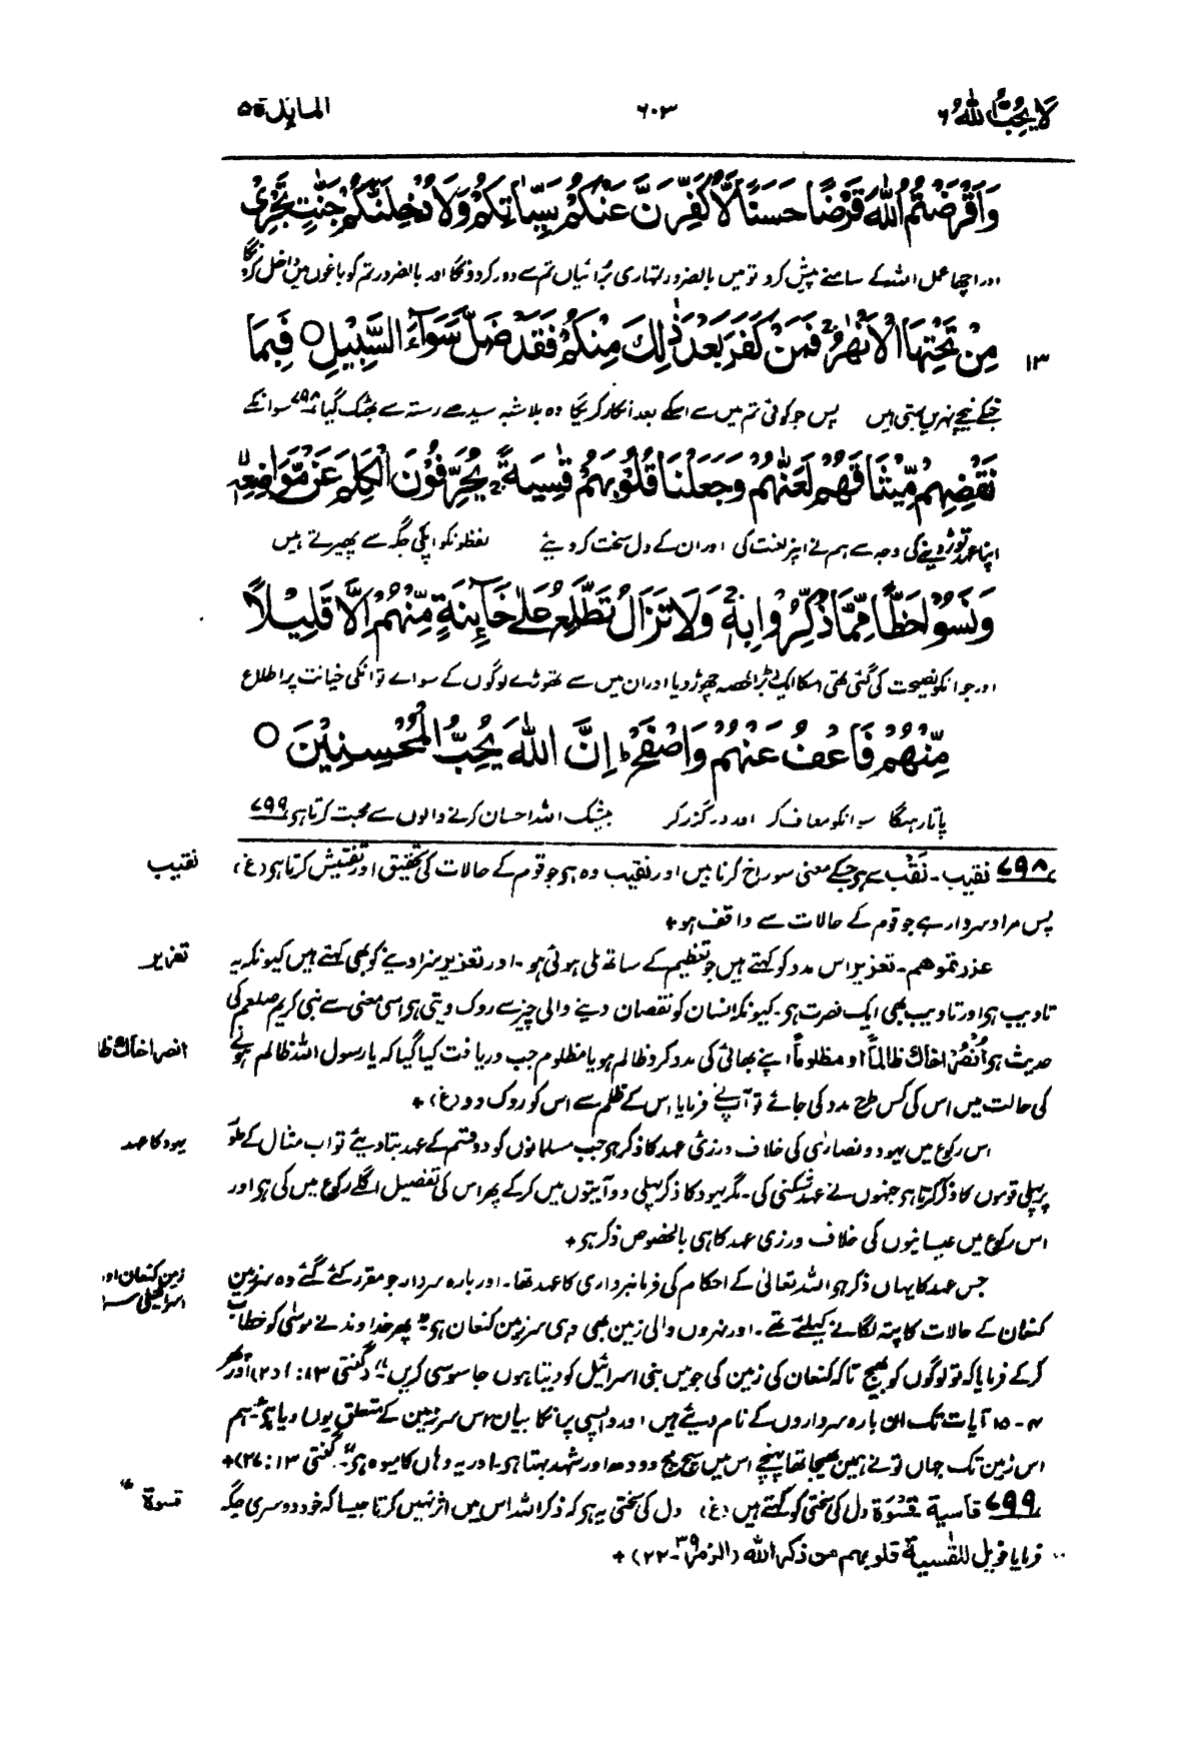 لَا يُحِبُّ اللهُ ٦
٦٠٣
المائدة ٥
وَاَقْرَضْتُمُ اللّٰهَ قَرْضًا حَسَنًا لَّاُكَفِّرَنَّ عَنْكُمْ سَيِّاٰتِكُمْ وَلَاُدْخِلَنَّكُمْ جَنّٰتٍ تَجْرِىْ
اور اچھا عمل اللہ کے سامنے پیش کرو تو میں بالضرور تمہاری بُرائیاں تم سے دور کردونگا اور بالضرور تم کو باغوں میں داخل کرونگا
مِنْ تَحْتِهَا الْاَنْهٰرُ ۚ فَمَنْ كَفَرَ بَعْدَ ذٰلِكَ مِنْكُمْ فَقَدْ ضَلَّ سَوَآءَ السَّبِيْلِ ○ فَبِمَا
١٣
جنکے نیچے نہریں بہتی ہیں پس جو کوئی تم میں سے اسکے بعد انکار کریگا وہ بلاشبہ سیدھے رستہ سے بھٹک گیا ٧٩٨ سو انکے
نَقْضِهِمْ مِّيْثَاقَهُمْ لَعَنّٰهُمْ وَجَعَلْنَا قُلُوْبَهُمْ قٰسِيَةً ۚ يُحَرِّفُوْنَ الْكَلِمَ عَنْ مَّوَاضِعِهٖ ۙ
اپنا عہد توڑ دینے کی وجہ سے ہم نے اُنپر لعنت کی اور ان کے دل سخت کر دیئے لفظونکو اپنی جگہ سے پھیرتے ہیں
وَنَسُوْا حَظًّا مِّمَّا ذُكِّرُوْا بِهٖ ۚ وَلَا تَزَالُ تَطَّلِعُ عَلٰى خَآئِنَةٍ مِّنْهُمْ اِلَّا قَلِيْلًا
اور جو انکو نصیحت کی گئی تھی اسکا ایک بڑا حصہ چھوڑ دیا اور ان میں سے تھوڑے لوگوں کے سواے تو انکی خیانت پر اطلاع
مِّنْهُمْ فَاعْفُ عَنْهُمْ وَاصْفَحْ ؕ اِنَّ اللّٰهَ يُحِبُّ الْمُحْسِنِيْنَ ○
پاتا رہیگا سو انکو معاف کر اور درگزر کر بیشک اللہ احسان کرنے والوں سے محبت کرتا ہے ٧٩٩
٧٩٨ نقیب ۔ نَقْب سے ہے جسکے معنی سوراخ کرنا ہیں اور نقیب وہ ہے جو قوم کے حالات کی تحقیق اور تفتیش کرتا ہے (غ)
نقیب
پس مراد سردار ہے جو قوم کے حالات سے واقف ہو +
عزرتموهم ۔ تعزیر اس مدد کو کہتے ہیں جو تعظیم کے ساتھ ملی ہوئی ہو ۔ اور تعزیر سزا دینے کو بھی کہتے ہیں کیونکہ یہ
تعزیر
تادیب ہے اور تادیب بھی ایک نصرت ہے ۔ کیونکہ انسان کو نقصان دینے والی چیز سے روک دیتی ہے اسی معنی سے نبی کریم صلعم کی
حدیث ہے اُنْصُرْ اخاك ظالمًا او مظلومًا اپنے بھائی کی مدد کرو ظالم ہو یا مظلوم جب دریافت کیا گیا کہ یا رسول اللہ ظالم ہونے
انصر اخاك ظا
کی حالت میں اس کی کس طرح مدد کی جائے تو آپ نے فرمایا اس کے ظلم سے اس کو روک دو (غ) +
اس رکوع میں یہود و نصاریٰ کی خلاف ورزئ عہد کا ذکر ہے جب مسلمانوں کو دو قسم کے عہد بتا دیئے تو اب مثال کے طور
یہود کا عہد
پر پہلی قوموں کا ذکر کرتا ہے جنہوں نے عہد شکنی کی ۔ مگر یہود کا ذکر پہلی دو آیتوں میں کرکے پھر اس کی تفصیل اگلے رکوع میں کی ہے اور
اس رکوع میں عیسائیوں کی خلاف ورزی عہد کا ہی بالخصوص ذکر ہے +
جس عہد کا یہاں ذکر ہے اللہ تعالیٰ کے احکام کی فرمانبرداری کا عہد تھا ۔ اور بارہ سردار جو مقرر کئے گئے وہ سرزمین
زمین کنعان اور
کنعان کے حالات کا پتہ لگانے کیلئے تھے ۔ اور نہروں والی زمین بھی وہی سرزمین کنعان ہے "پھر خداوند نے موسیٰ کو خطاب
کرکے فرمایا کہ تو لوگوں کو بھیج تاکہ کنعان کی زمین کی جو میں بنی اسرائیل کو دیتا ہوں جاسوسی کریں" (گنتی ١٣ : ١ و ٢) اور پھر
٤ - ١٥ آیات تک ان بارہ سرداروں کے نام دیئے ہیں اور واپسی پر انکا بیان اس سرزمین کے متعلق یوں دیا ہے "ہم
اس زمین تک جہاں تو نے ہمیں بھیجا تھا پہنچے اس میں سچ مچ دودھ اور شہد بہتا ہے اور یہ وہاں کا میوہ ہے" ۔ گنتی ١٣ : ٢٧) +
٧٩٩ قاسية قَسْوَة دل کی سختی کو کہتے ہیں (غ) دل کی سختی یہ ہے کہ ذکر اللہ اس میں اثر نہیں کرتا جیسا کہ خود دوسری جگہ
قسوة
فرمایا فویل للقٰسیة قلوبهم من ذکر الله (الزمر ٣٩ - ٢٢) +